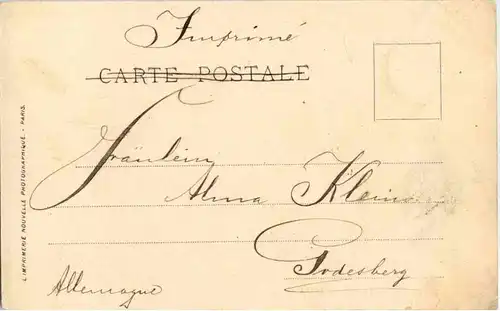 Imprimé
CARTE POSTALE
Fräulein
Alma Klein
Godesberg
Allemagne
L'IMPRIMERIE NOUVELLE PHOTOGRAPHIQUE - PARIS.